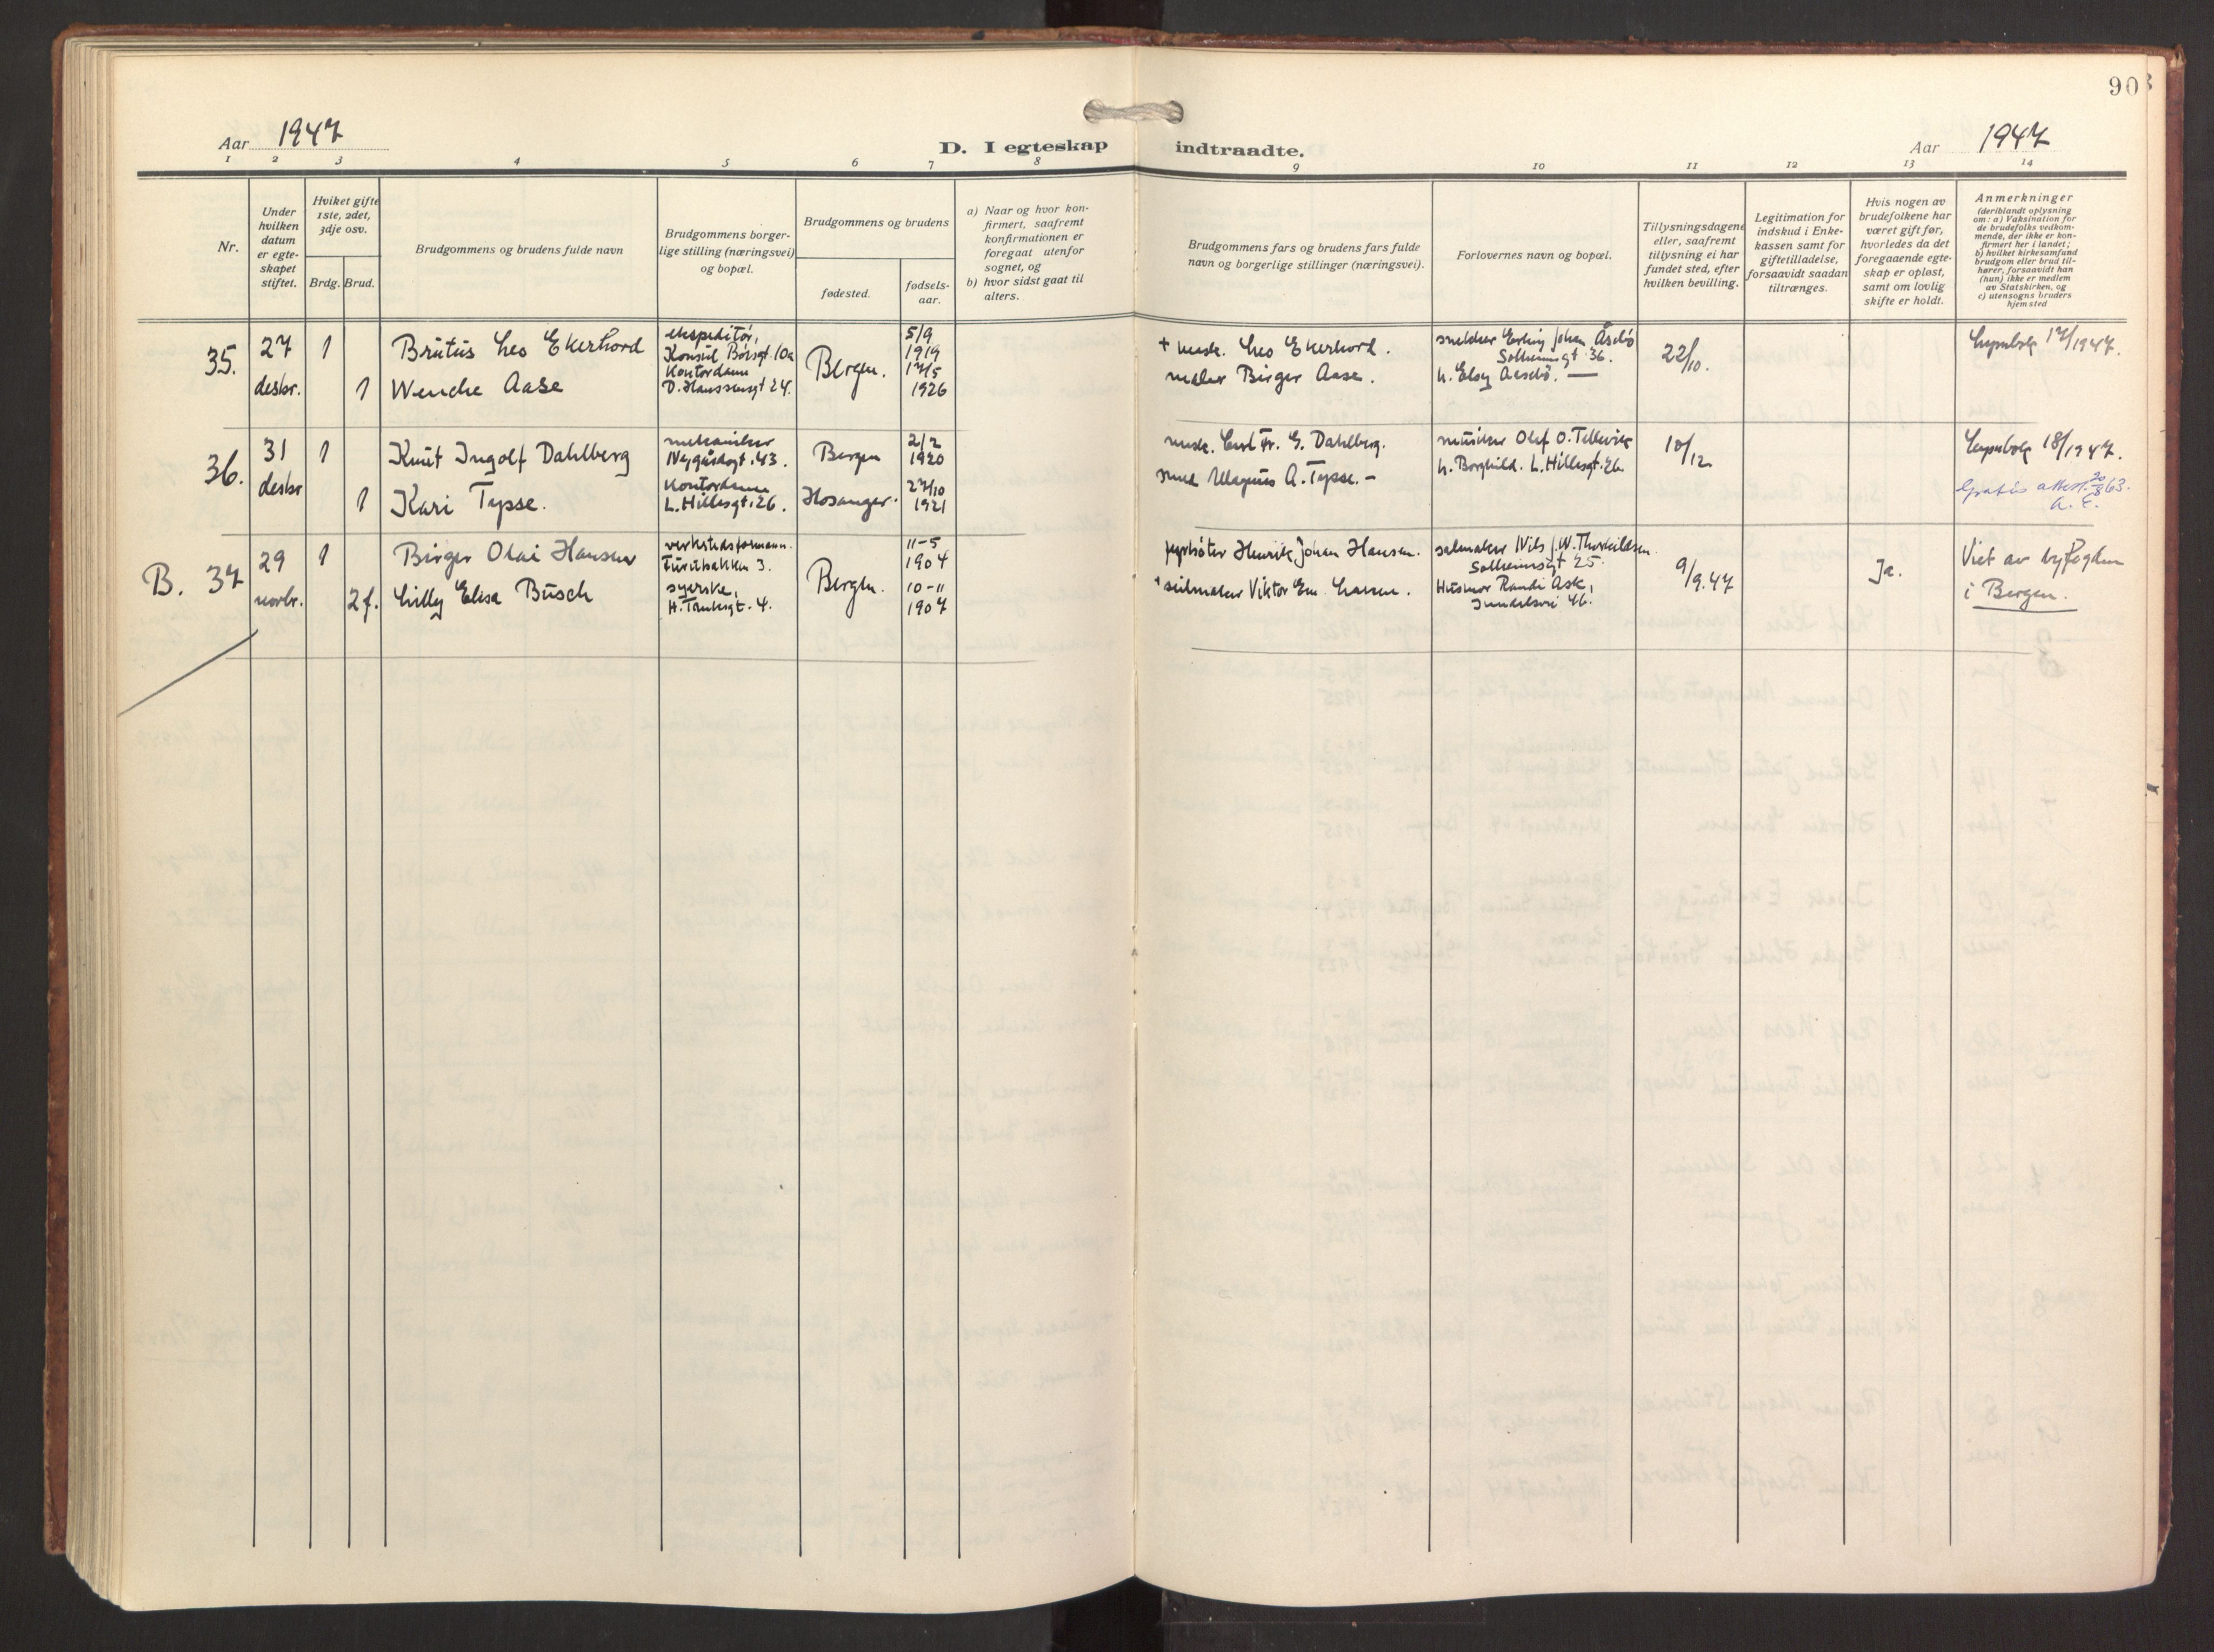 90
Aar 1947
D. I egteskap indtraadte.
Aar 1947
1 2 3 4 5 6 7 8 9 10 11 12 13 14
Nr.
Under hvilken datum er egteskapet stiftet.
Hviket gifte 1ste, 2det, 3dje osv.
Brdg. Brud.
Brudgommens og brudens fulde navn
Brudgommens borgerlige stilling (næringsvei) og bopæl.
Brudgommens og brudens
fødested.
fødselsaar.
a) Naar og hvor konfirmert, saafremt konfirmationen er foregaat utenfor sognet, og
b) hvor sidst gaat til alters.
Brudgommens fars og brudens fars fulde navn og borgerlige stillinger (næringsvei).
Forlovernes navn og bopæl.
Tillysningsdagene eller, saafremt tillysning ei har fundet sted, efter hvilken bevilling.
Legitimation for indskud i Enkekassen samt for giftetilladelse, forsaavidt saadan tiltrænges.
Hvis nogen av brudefolkene har været gift før, hvorledes da det foregaaende egteskap er opløst, samt om lovlig skifte er holdt.
Anmerkninger (deriblandt oplysning om: a) Vaksination for de brudefolks vedkommende, der ikke er konfirmert her i landet; b) hvilket kirkesamfund brudgom eller brud tilhører, forsaavidt han (hun) ikke er medlem av Statskirken, og c) utensogns bruders hjemsted
35. 27 desbr.
1 Brutus Leo Ekerhovd
ekspeditør, Konsul Børsgt. 10a
5/9 1919
1 Wenche Aase
Kontordame D. Hanssensgt 24.
Bergen.
17/5 1926
+ mask. Leo Ekerhovd.
maler Birger Aase.
snekker Erling Johan Åsebø Solheimsgt. 36.
h. Elsy Aasebø. —
22/10.
Lysnbok 17/1947.
36. 31 desbr
1 Knut Ingolf Dahlberg
mekaniker Nygårdsgt. 43.
Bergen
2/2 1920
1 Kari Tepse.
Kontordame L. Hillesgt. 26.
Hosanger.
27/10 1921
mask. Carl Fr. G. Dahlberg.
smed Magnus A. Tepse. -
musiker Olaf O. Tellevik
h. Borghild. L. Hillesgt. 26.
10/12
Lysnbok 18/1947.
Gratis attest. 20/8 63.
B. 37 29 novbr.
1 Birger Olai Hansen
verkstedsformann. Furubakken 3.
11-5 1904
2 f. Lilly Elisa Busch
syerske, H. Tanksgt. 4.
Bergen.
10-11 1907
fyrbøter Henrik Johan Hansen.
+ seilmaker Viktor Em. Larsen.
salmaker Nils J. W. Thorkildsen Solheimsgt 25.
Husmor Randi Ask,
9/9.47
Ja.
Viet av byfogden i Bergen.